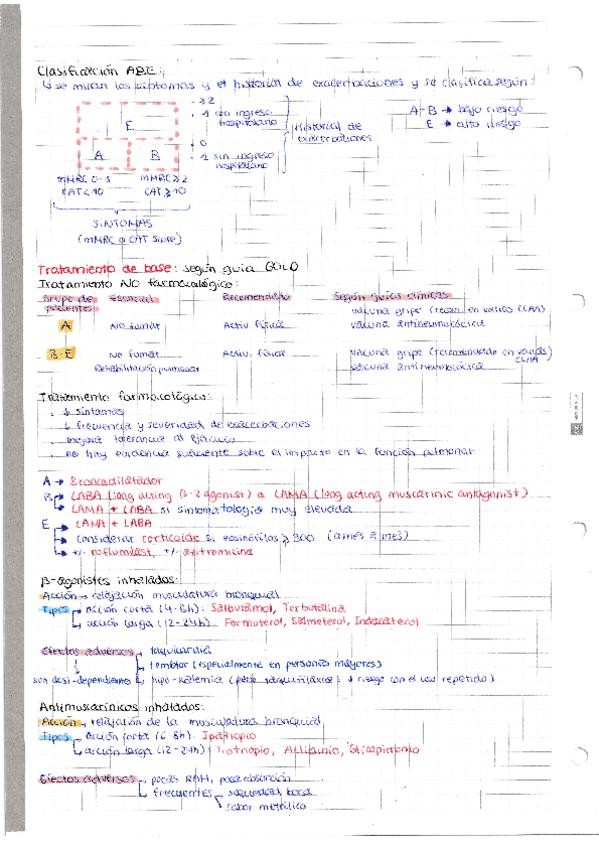 Clasificación ABE:
↳ se miran los síntomas y el historial de exacerbaciones y se clasifica según:
E
A B
· ≥2
· 1 con ingreso hospitalario
· 0
· 1 sin ingreso hospitalario
Historial de exacerbaciones
A-B → bajo riesgo
E → alto riesgo
mMRC 0-1 mMRC ≥2
CAT < 10 CAT ≥ 10
SíNTOMAS
(mMRC o CAT score)
Tratamiento de base: según guía GOLD
Tratamiento NO farmacológico:
Grupo de pacientes Esencial Recomendado Según guías clínicas
A No fumar Activ física vacuna gripe (recom en varias CCAA)
vacuna antineumocócica
B-E No fumar Activ. física vacuna gripe (recomendado en varias CCAA)
Rehabilitación pulmonar vacuna antineumocócica
Tratamiento farmacológico:
. ↓ síntomas
. ↓ frecuencia y severidad de exacerbaciones
. mejorar tolerancia al ejercicio
. no hay evidencia suficiente sobre el impacto en la función pulmonar
A → Broncodilatador
B → LABA (long acting β-2 agonist) o LAMA (long acting muscarinic antagonist)
→ LAMA + LABA si sintomatología muy elevada
E → LAMA + LABA
→ considerar corticoide si eosinófilos ≥ 300
→ +/- roflumilast, +/- azitromicina
β-agonistas inhalados:
Acción → relajación musculatura bronquial
Tipos → acción corta (4-6h): Salbutamol, Terbutalina
→ acción larga (12-24h): Formoterol, Salmeterol, Indacaterol
Efectos adversos → taquicardia
→ temblor (especialmente en personas mayores)
son dosi-dependientes → hipo-kalemia
Antimuscarínicos inhalados:
Acción → relajación de la musculatura bronquial
Tipos → acción corta (6-8h): Ipatropio
→ acción larga (12-24h): Tiotropio, Aclidinio, Glicopirronio
Efectos adversos → pocas RAM, poca absorción
→ frecuentes → sequedad boca
→ sabor metálico